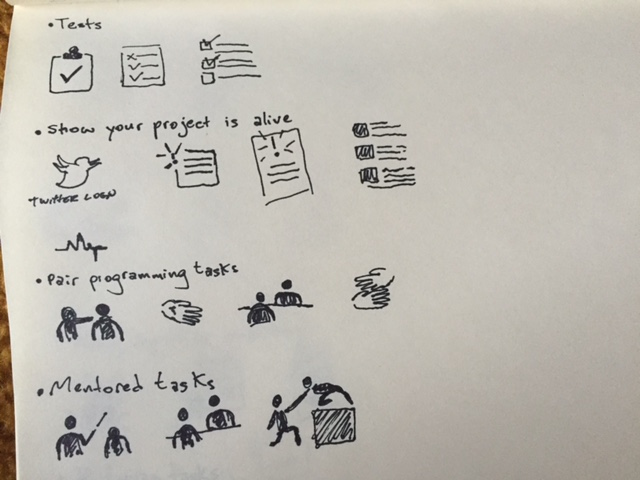 • Tests
• Show your project is alive
TWITTER LOGO
• Pair programming tasks
• Mentored tasks